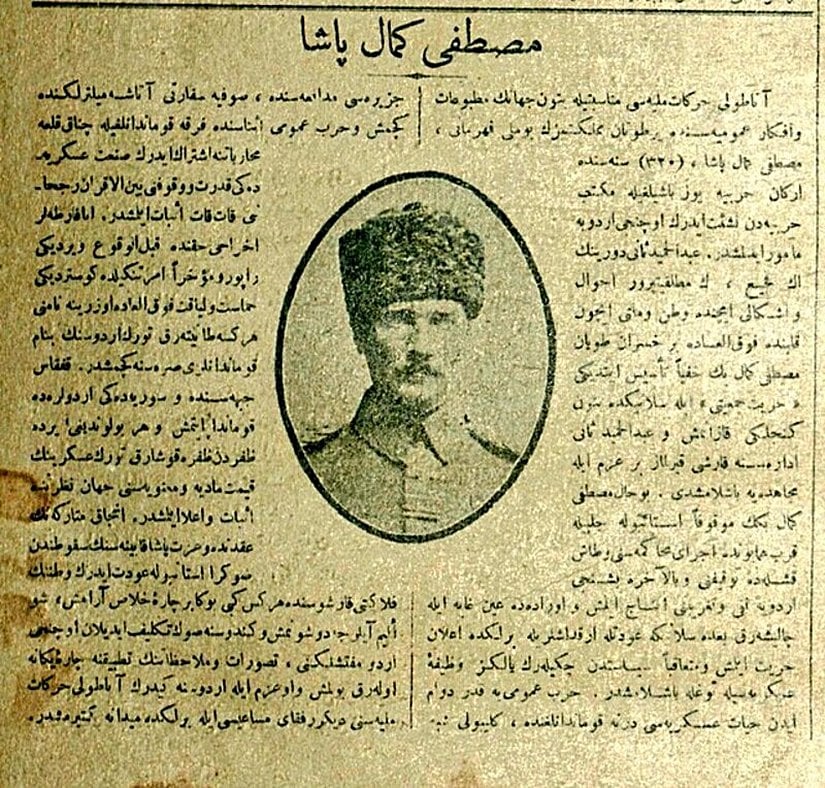 مصطفی كمال پاشا
آناطولی حركات ملیه‌سی مناسبتیله بتون جهانك مطبوعات
و افكار عمومیه‌سنده یر طوتان مملكتمزك بو ملی قهرمانی ،
مصطفی كمال پاشا ، (٣٢٠) سنه‌سنده
اركان حربیه یوز باشیلغیله مكتب
حربیه‌دن نشئت ایدرك اوچنجی اردویه
مأمور ایدلمشدر. عبدالحمید ثانی دورینك
اك فجیع ، اك مظلمتپرور احوال
و اشكالی ایچنده وطن و ملتی ایچون
قلبنده فوق العاده بر خسران طویان
مصطفی كمال بك خفیاً تأسیس ایتدیكی
« حریت جمعیتی » ایله سلانیكده بتون
كنجلكی قازانمش و عبدالحمید ثانی
اداره‌سنه قارشی قیرلماز بر عزم ایله
مجاهده‌یه باشلامشدی . بو حال مصطفی
كمال بكك موقوفاً استانبوله جلبیله
قرب همایونده اجرای محاكمه‌سنی و طاش
قشله‌ده توقیفنی و بالآخره بشنجی
اردویه نفی و تغریبنی انتاج ایتمش و اوراده‌ده عین غایه ایله
چالیشه‌رق بعده سلانیكه عودتله آرقداشلریله برلكده اعلان
حریت ایتمش و متعاقباً سیاستدن چكیله‌رك یالكز وظیفهٔ
عسكریه‌سیله توغله باشلامشدر . حرب عمومی‌یه قدر دوام
ایدن حیات عسكریه‌سی درنه قوماندانلغنده ، كلیبولی شبه
جزیره‌سی مدافعه‌سنده ، صوفیه سفارتی آتاشه میلیترلكنده
كچمش و حرب عمومی اثناسنده فرقه قوماندانلغیله چناق قلعه
محارباتنه اشتراك ایدرك صنعت عسكریه‌
ده‌كی قدرت و وقوفنی بین الاقران رجحا‌
نی قات قات اثبات ایلمشدر. انافارطه‌لر
اخراجی حقنده قبل الوقوع ویردیكی
راپور و مؤخراً امر تشكیلده كوستردیكی
حماست و لیاقت فوق العاده اوزرینه نامنی
هر كسه طانیته‌رق تورك اردوسنك بنام
قوماندانلری صره‌سنه كچمشدر. قفقاس
جبهه‌سنده و سوریه‌ده‌كی اردولره‌ده
قوماندا ایتمش و هر بولوندیغی یرده
ظفردن ظفره قوشارق تورك عسكرینك
قیمت مادیه و معنویه‌سنی جهان نظرنده
اثبات و اعلا ایلمشدر. انجاق متاركه‌نك
عقدنده و عزت پاشا قابینه‌سنك سقوطندن
صوكرا استانبوله عودت ایدرك وطننك
فلاكتی قارشوسنده هركس كبی بوكا بر چارهٔ خلاص آرامش، شو
الیم آیلرجه دوشونمش و كندوسنه صوك تكلیف ایدیلن اوچنجی
اردو مفتشلكنی ، تصورات و ملاحظاتنك تطبیقنه چارهٔ یكانه
اوله‌رق بولمش و او عزم ایله اردوسنه كیدرك آناطولی حركات
ملیه‌سنی دیكر رفقای مساعیسی ایله برلكده میدانه كتیرمشدر.